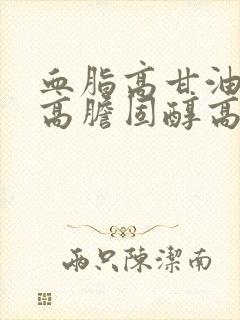 血脂高甘油
高膽固醇高
兩只陳潔南